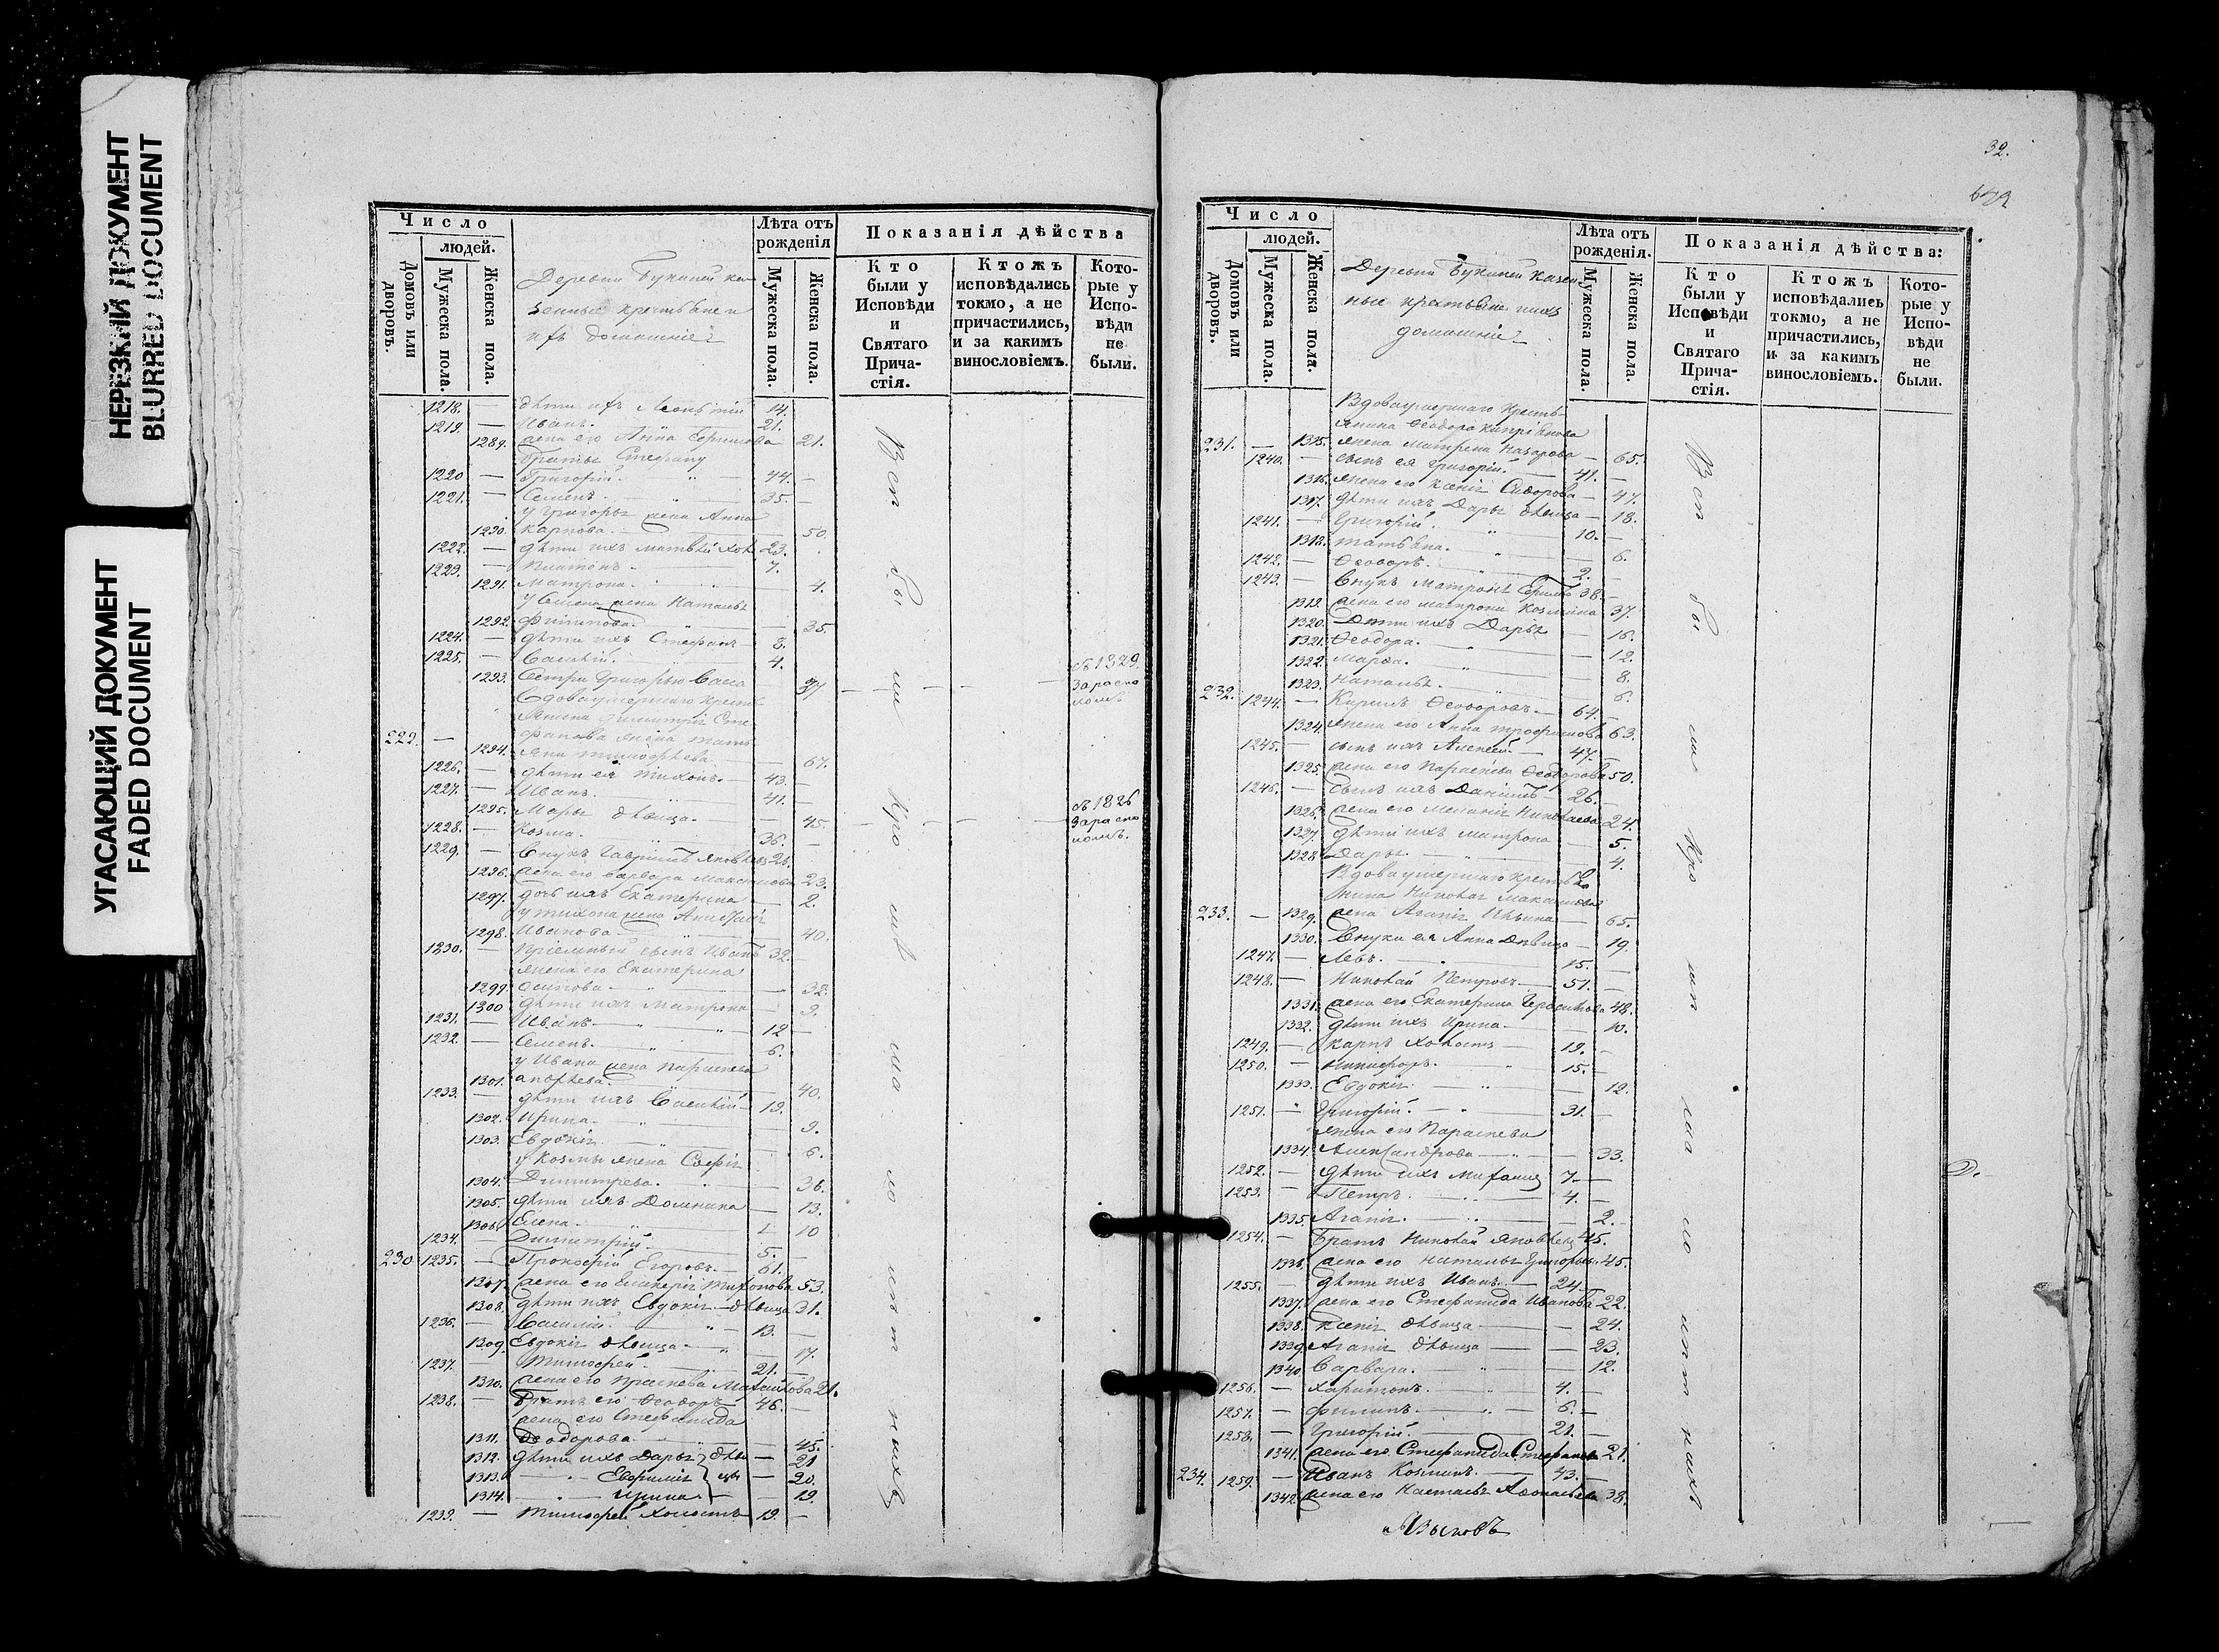 НЕРЕЗКИЙ ДОКУМЕНТ
BLURRED DOCUMENT
УГАСАЮЩИЙ ДОКУМЕНТ
FADED DOCUMENT
Число
людей.
Домовъ или дворовъ.
Мужеска пола.
Женска пола.
Деревни Букиней ка-
зенные крестьяне и
ихъ домашніе
Лѣта отъ рожденія
Мужеска пола.
Женска пола.
Показанія дѣйства
Кто были у Исповѣди и Святаго Причастія.
Ктожъ исповѣдались токмо, а не причастились, и за какимъ винословіемъ.
Которые у Исповѣди не были.
1218. — дѣти ихъ Леонтій 14.
1219. — Иванъ. 21.
1289. жена его Анна 21.
Братья Стефану
1220 — Григорій. 44. —
1221. — Семенъ. 35. —
у Григорья жена Анна
1290. Карпова. 50.
1222. — дѣти ихъ Матвѣй хол 23.
1223. — Платонъ. 7.
1291. Матрона. 4.
у Семена жена Наталья
1292. Филипова. 35.
1224. — дѣти ихъ Стефанъ 8.
1225. — Василій. 4.
1293. Сестра Григорью Васса 37
съ 1829
за раско
ломъ
Вдова умершаго крестья
янина Димитрія Сте
229. — фанова жена Тать
1294. яна Тимофѣева. 67.
1226. — дѣти ея Тихонъ. 43. —
1227. — Иванъ. 41. —
1295. Марья дѣвица. 45.
съ 1826
за раско
ломъ.
1228. — Козма. 36. —
1229. — Внукъ Гаврiилъ Яковлевъ 26.
1296. жена его Варвара Максимова 23.
1297. дочь ихъ Екатерина 2.
у Тихона жена
1298. Иванова 40.
1230. — Пріемный сынъ Иванъ 32. —
жена его Екатерина
1299. Осипова 32.
1300 дѣти ихъ Матрона 9.
1231. — Иванъ 12 —
1232. — Семенъ. 6.
у Ивана жена Параскева
1301. Андреева. 40.
1233. — дѣти ихъ Василій 19.
1302. Ирина. 9.
1303. Евдокія 6.
у Козмы жена Софія
1304. Димитрева. 36.
1305. дѣти ихъ Домника 13.
1306. Елена. 10
1234. — Димитрій 5. —
230 1235. — Прокофій Егоровъ. 61.
1307. жена его Гликерія Тихонова 53.
1308. дѣти ихъ Евдокія дѣвица 31.
1236. — Василій. 13. —
1309. Евдокія дѣвица 17.
1237. — Тимофей. 21. —
1310. жена его Праскева Михайлова 21.
1238. — Братъ его Ѳеодоръ 46. —
жена его Стефанида
1311. Ѳеодорова 45.
1312. дѣти ихъ Дарья дѣви — 21
1313. Евфимія цы — 20.
1314. Ирина — 19.
1239. — Тимофей холостъ 19. —
Всѣ бы ли про ма ло
32.
Число
людей.
Домовъ или дворовъ.
Мужеска пола.
Женска пола.
Деревни Букиней казен-
ные крестьяне ихъ
домашніе
Лѣта отъ рожденія.
Мужеска пола.
Женска пола.
Показанія дѣйства:
Кто были у Исповѣди и Святаго Причастія.
Ктожъ исповѣдались токмо, а не причастились, и за какимъ винословіемъ.
Которые у Исповѣди не были.
Вдова умершаго кресть
янина Ѳеодора Кипріянова
231. — 1315. жена Матрена Назарова 65.
1240. — сынъ ея Григорій. 41. —
1316. жена его Ксенія Сидорова 47.
1317. дѣти ихъ Дарья дѣвица 18.
1241. — Григорій. 10. —
1318. Татьяна. 6.
1242. — Ѳеодоръ. 2. —
1243. — Внукъ Матроны 38. —
1319. жена его Матрона Козмина 37.
1320. Дѣти ихъ Дарья 16.
1321. Ѳеодора. 12.
1322. Марѳа. 8.
1323. Наталья 6.
232. 1244. — Кирилъ Ѳеодоровъ. 64. —
1324. жена его Анна Трофимова 63.
1245. — сынъ ихъ Алексѣй. 47. —
1325. жена его Параскева Ѳеодорова 50.
1246. — Сынъ ихъ Даніилъ 26. —
1326. жена его Меланія Николаева 24.
1327. дѣти ихъ Матрона 5.
1328. Дарья 4.
Вдова умершаго крестья
янина Николая Максимова
233. — 1329. жена Агапія Ильина 65.
1330. Внуки ея Анна дѣвица 19.
1247. — Левъ. 15. —
1248. — Николай Петровъ 51. —
1331. жена его Екатерина Герасимова 48.
1332. дѣти ихъ Ирина 10.
1249. — Карпъ холостъ 19. —
1250. — Никифоръ. 15. —
1333. Евдокія 12.
1251. — Григорій. 31. —
жена его Параскева
1334. Александрова 33.
1252. — дѣти ихъ Михаилъ 7. —
1253. — Петръ. 4. —
1335. Агапія. 2.
1254. — Братъ Николай Яковлевъ 45.
1336. жена его Наталья Григорьева 45.
1255. — дѣти ихъ Иванъ. 24. —
1337. жена его Стефанида Иванова 22.
1338. Ксенія дѣвица 24.
1339. Агапія дѣвица 23.
1340. Варвара. 12.
1256. — Харитонъ. 4. —
1257. — Филипъ. 6. —
1258. — Григорій. 21. —
1341. жена его Стефанида Стефанова 21.
234. 1259. — Иванъ Козминъ. 43. —
1342. жена его Наталья Аѳонасьева 38.
Всѣ бы ли про ма ло
Языковъ